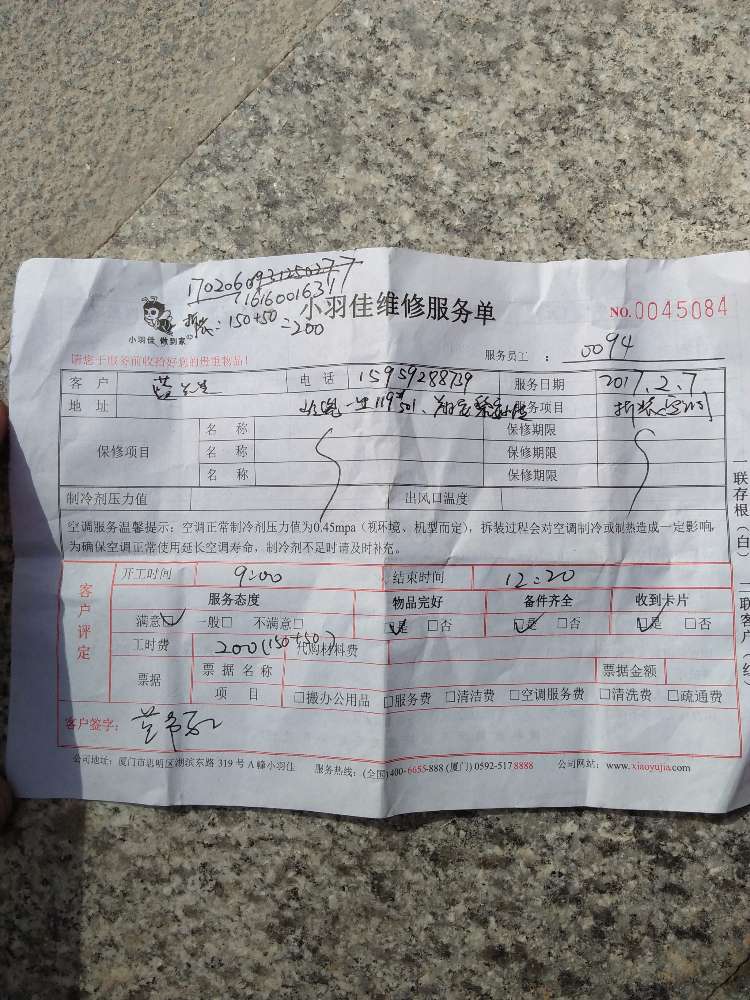 1702060931250277
71616001631
拆装:150+50=200
小羽佳维修服务单
NO.0045084
小羽佳 做到家
请您于服务前收拾好您的贵重物品!
服务员工 : 0094
客 户 蓝先生 电 话 15959288739 服务日期 2017.2.7
地 址 501 服务项目 拆装空调
保修项目 名 称 保修期限
名 称 保修期限
名 称 保修期限
制冷剂压力值 出风口温度
空调服务温馨提示:空调正常制冷剂压力值为0.45mpa(视环境、机型而定),拆装过程会对空调制冷或制热造成一定影响,
为确保空调正常使用延长空调寿命,制冷剂不足时请及时补充。
客户评定
开工时间 9:00 结束时间 12:20
服务态度 物品完好 备件齐全 收到卡片
满意☑ 一般□ 不满意□ ☑是 □否 ☑是 □否 ☑是 □否
工时费 200(150+50) 代购材料费
票据 票 据 名 称 票据金额
项 目 □搬办公用品 □服务费 □清洁费 □空调服务费 □清洗费 □疏通费
客户签字:
公司地址:厦门市思明区湖滨东路 319 号 A 幢小羽佳 服务热线:(全国)400-6655-888 (厦门) 0592-5178888 公司网站:www.xiaoyujia.com
一联存根(白)
联客户(红)